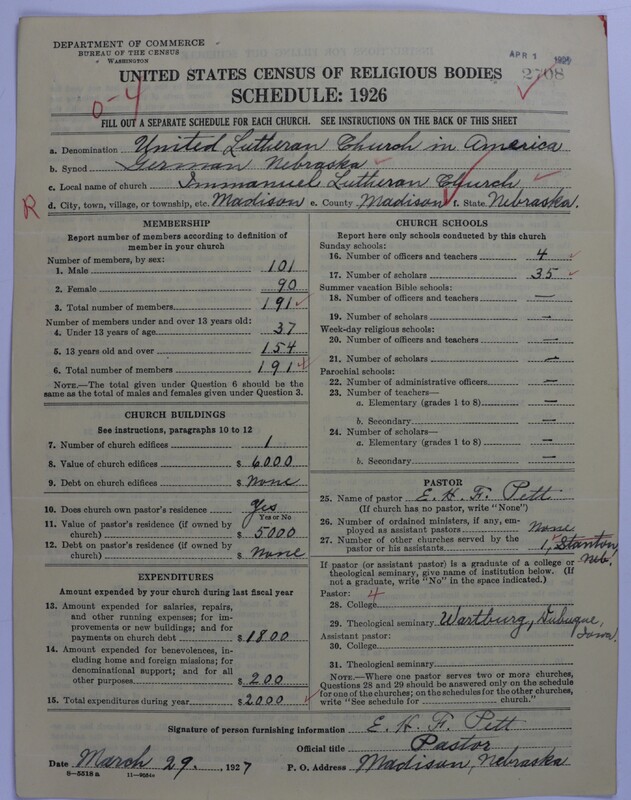 DEPARTMENT OF COMMERCE
BUREAU OF THE CENSUS
WASHINGTON
APR 1
2708
UNITED STATES CENSUS OF RELIGIOUS BODIES
SCHEDULE: 1926
0-4
FILL OUT A SEPARATE SCHEDULE FOR EACH CHURCH. SEE INSTRUCTIONS ON THE BACK OF THIS SHEET
a. Denomination United Lutheran Church in America
b. Synod German Nebraska
c. Local name of church Immanuel Lutheran Church
R
d. City, town, village, or township, etc. Madison e. County Madison f. State Nebraska.
MEMBERSHIP
Report number of members according to definition of
member in your church
Number of members, by sex:
1. Male 101
2. Female 90
3. Total number of members 191
Number of members under and over 13 years old:
4. Under 13 years of age 37
5. 13 years old and over 154
6. Total number of members 191
NOTE.—The total given under Question 6 should be
same as the total of males and females given under Question 3.
CHURCH BUILDINGS
See instructions, paragraphs 10 to 12
7. Number of church edifices 1
8. Value of church edifices $ 6000
9. Debt on church edifices $ None
10. Does church own pastor's residence Yes
Yes or No
11. Value of pastor's residence (if owned by
church) $ 5000
12. Debt on pastor's residence (if owned by
church) $ None
EXPENDITURES
Amount expended by your church during last fiscal year
13. Amount expended for salaries, repairs,
and other running expenses; for im-
provements or new buildings; and for
payments on church debt $ 1800
14. Amount expended for benevolences, in-
cluding home and foreign missions; for
denominational support; and for all
other purposes $ 200
15. Total expenditures during year $ 2000
CHURCH SCHOOLS
Report here only schools conducted by this church
Sunday schools:
16. Number of officers and teachers 4
17. Number of scholars 35
Summer vacation Bible schools:
18. Number of officers and teachers —
19. Number of scholars —
Week-day religious schools:
20. Number of officers and teachers —
21. Number of scholars —
Parochial schools:
22. Number of administrative officers —
23. Number of teachers—
a. Elementary (grades 1 to 8) —
b. Secondary —
24. Number of scholars—
a. Elementary (grades 1 to 8) —
b. Secondary —
PASTOR
25. Name of pastor E. H. F. Pett
(If church has no pastor, write "None")
26. Number of ordained ministers, if any, em-
ployed as assistant pastors None
27. Number of other churches served by the
pastor or his assistants 1, Stanton, Neb.
If pastor (or assistant pastor) is a graduate of a college or
theological seminary, give name of institution below. (If
not a graduate, write "No" in the space indicated.)
Pastor: 4
28. College
29. Theological seminary Wartburg, Dubuque, Iowa.
Assistant pastor:
30. College
31. Theological seminary
NOTE.—Where one pastor serves two or more churches,
Questions 28 and 29 should be answered only on the schedule
for one of the churches; on the schedules for the other churches,
write "See schedule for church."
Signature of person furnishing information E. H. F. Pett
Official title Pastor
Date March 29, 1927 P. O. Address Madison, Nebraska
8—5518 a